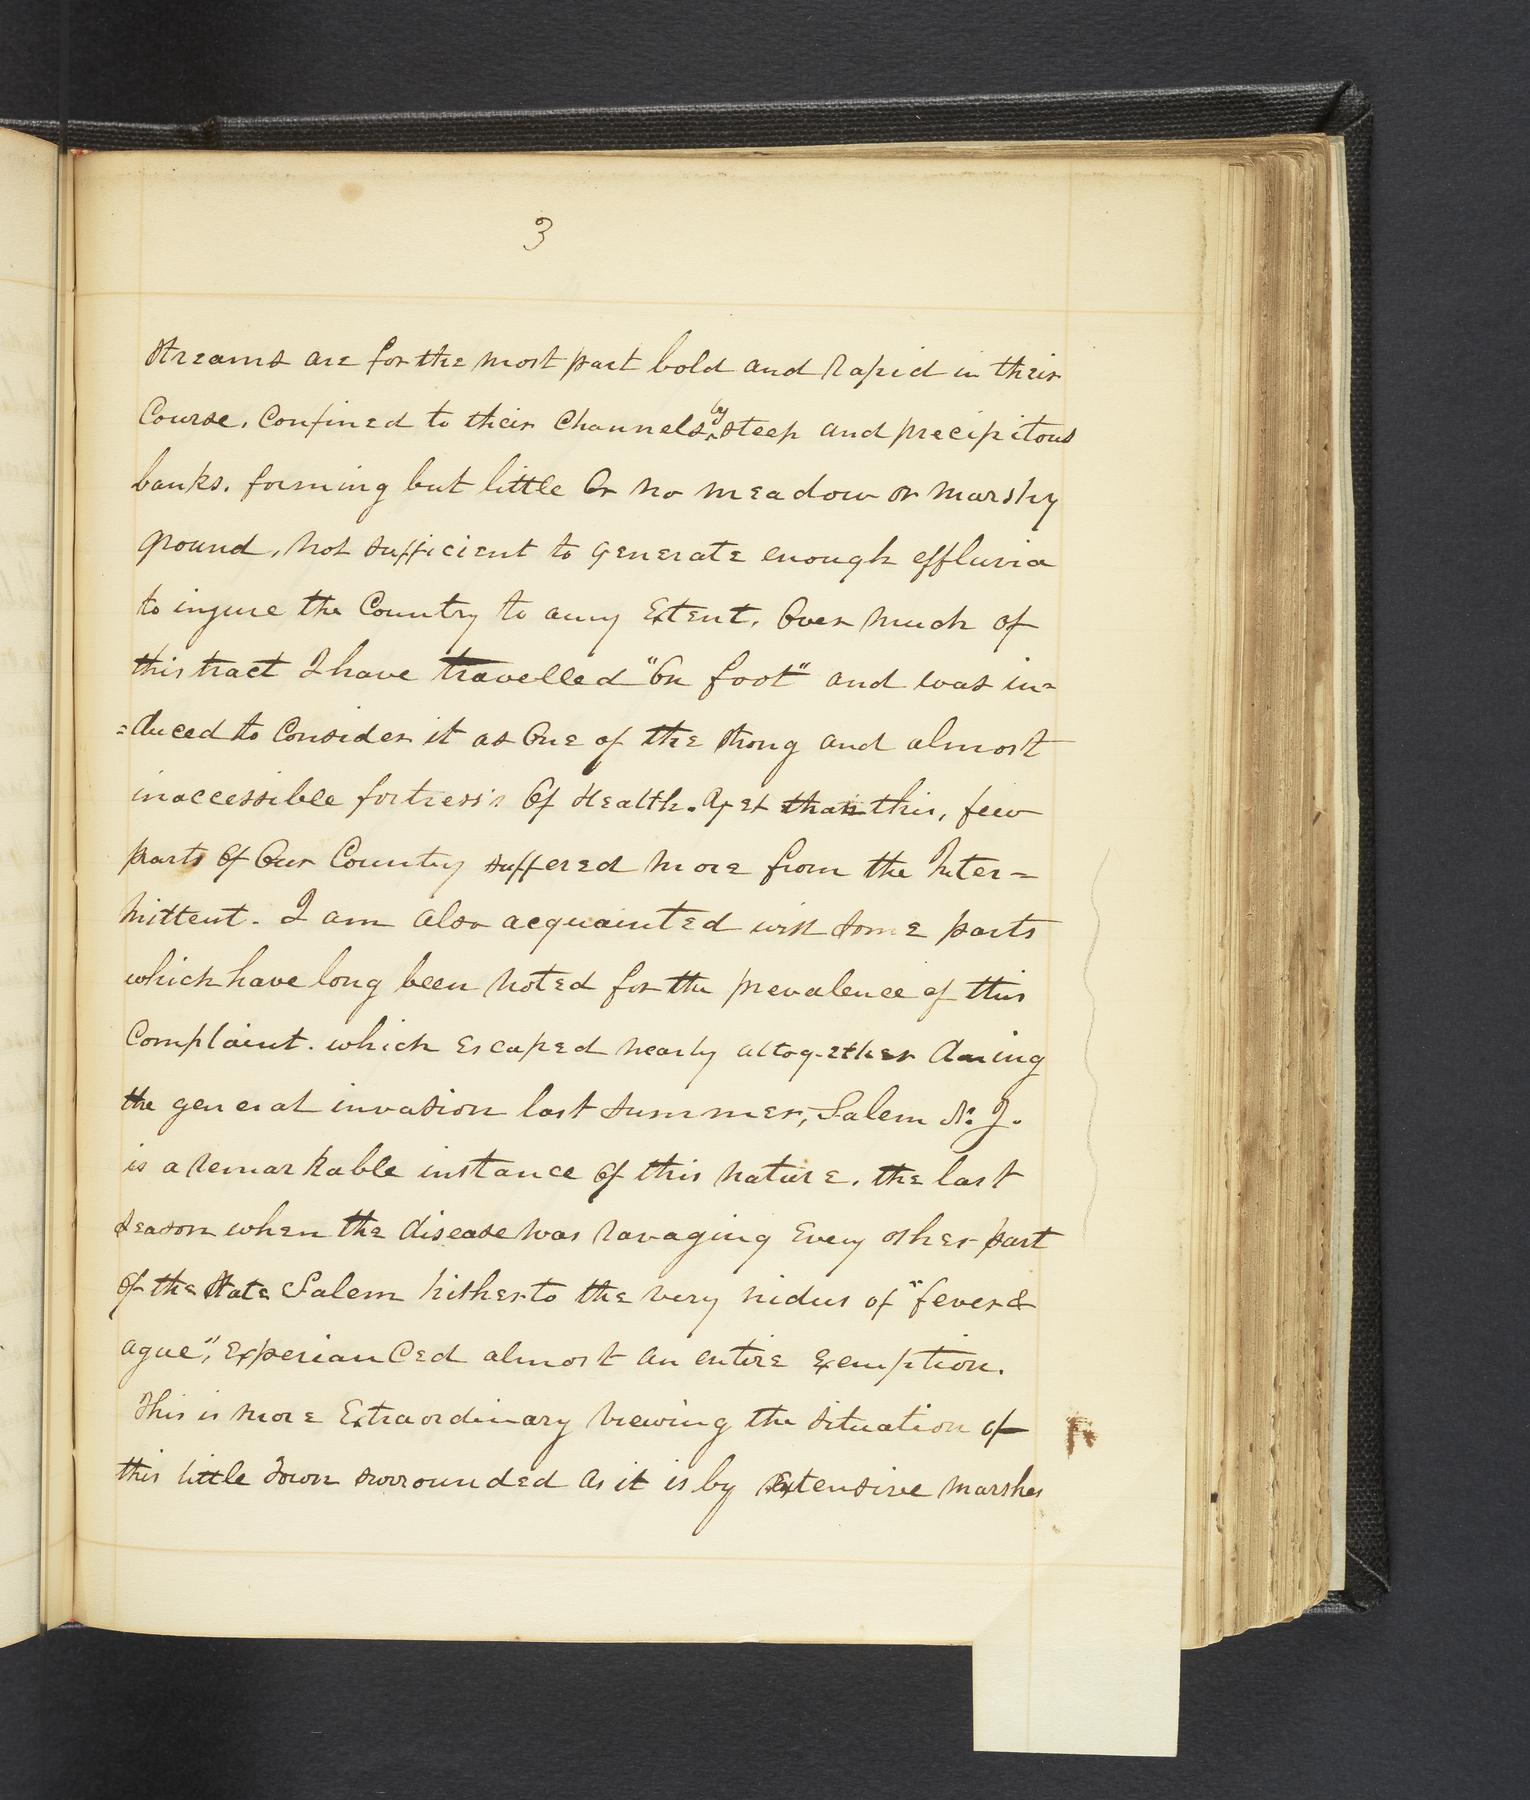 3
streams are for the most part bold and rapid in their
Course, Confined to their Channels by steep and precipitous
banks. forming but little or no meadow or marshy
ground, not sufficient to generate enough effluvia
to injure the Country to any Extent. Over much of
this tract I have travelled "On foot" and was in=
=duced to Consider it as One of the strong and almost
inaccessible fortress's Of Health. Yet than this, few
parts Of Our Country suffered more from the Inter=
mittent. I am also acquainted with some parts
which have long been noted for the prevalence of this
Complaint. which Escaped nearly altogether during
the general invasion last summer, Salem N. J.
is a remarkable instance Of this nature. the last
season when the disease was ravaging Every other part
Of the State Salem hitherto the very nidus of "fever &
ague", Experianced almost an entire Exemption.
This is more Extraordinary viewing the situation of
this little Town surrounded as it is by Extensive marshes